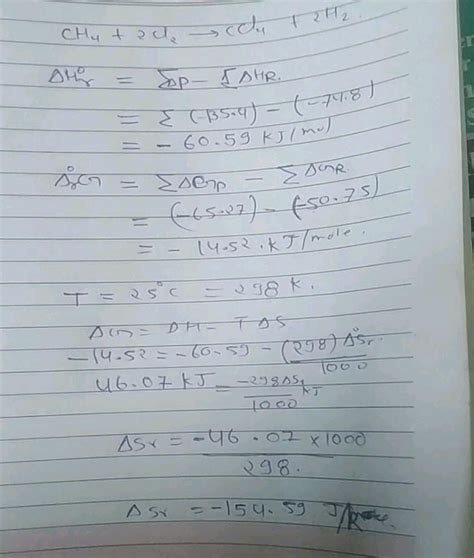 CH4 + 2Cl2 → CCl4 + 2H2.
ΔH°r = ΣP - ΣΔHR.
= Σ (-135.4) - (-74.8)
= - 60.59 KJ/mol
Δ°rG = ΣΔGP - ΣΔGR
= (-65.27) - (-50.75)
= - 14.52 . KJ/mole.
T = 25°C = 298 K.
ΔG = ΔH - TΔS
-14.52 = -60.59 - (298) ΔS°r / 1000
46.07 KJ = -298ΔSr / 1000 KJ
ΔSr = -46.07 × 1000 / 298.
ΔSr = -154.59 J/K